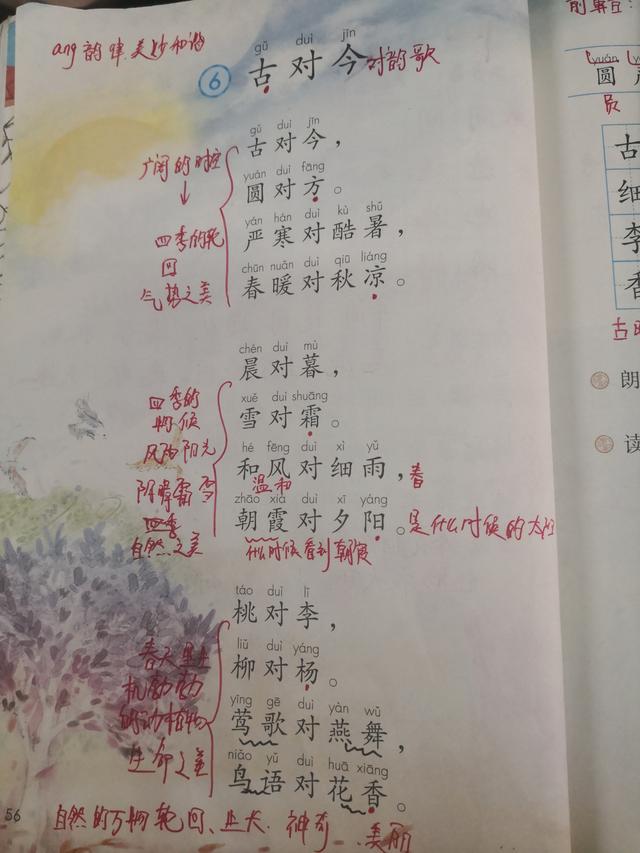 ang韵律美妙和谐
gǔ duì jīn
6 古对今 对韵歌
gǔ duì jīn
古对今，
广阔的时空
yuán duì fāng
圆对方。
yán hán duì kù shǔ
严寒对酷暑，
四季的轮
回
chūn nuǎn duì qiū liáng
春暖对秋凉。
气势之美
chén duì mù
晨对暮，
四季的
物候
xuě duì shuāng
雪对霜。
风雨阳光
hé fēng duì xì yǔ
和风对细雨，春
温和
阴晴霜雪
zhāo xiá duì xī yáng
朝霞对夕阳。是什么时候的太阳
四季
自然之美
什么时候看到朝霞
táo duì lǐ
桃对李，
liǔ duì yáng
柳对杨。
春天里
机勃勃
yīng gē duì yàn wǔ
莺歌对燕舞，
的动植物
生命之美
niǎo yǔ duì huā xiāng
鸟语对花香。
56
自然的万物轮回、生长、神奇、美丽
yuán
圆
员
古
细
李
香
朗
读